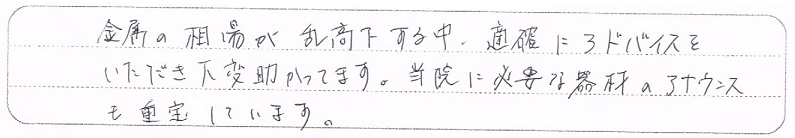 金属の相場が乱高下する中、適確にアドバイスを
いただき大変助かってます。当院に必要な器材のアナウンス
も重宝しています。